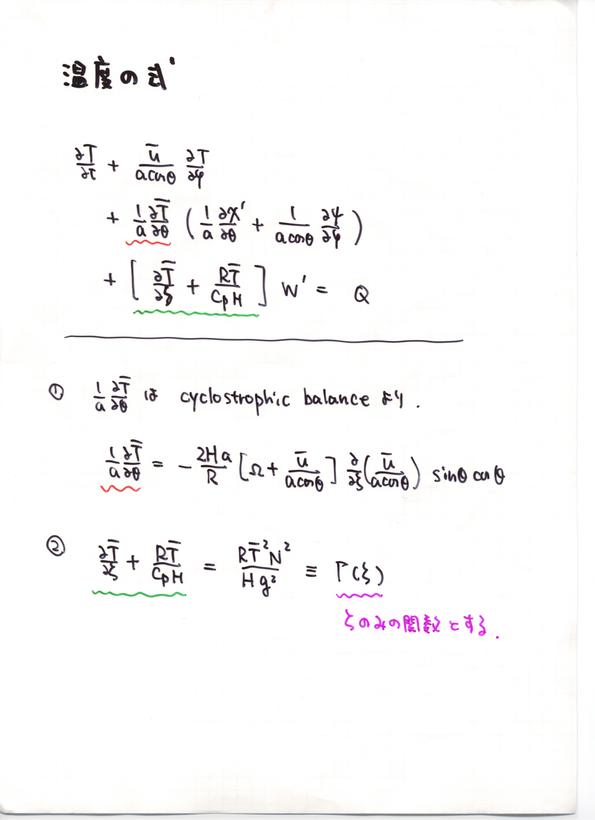 温度の式'
∂T/∂t + ū/(a cosθ) ∂T/∂φ
+ 1/a ∂T̄/∂θ ( 1/a ∂χ'/∂θ + 1/(a cosθ) ∂ψ/∂φ )
+ [ ∂T̄/∂ζ + RT̄/(CpH) ] W' = Q
① 1/a ∂T̄/∂θ は cyclostrophic balance より.
1/a ∂T̄/∂θ = - 2Ha/R [Ω + ū/(a cosθ)] ∂/∂ζ (ū/(a cosθ)) sinθ cosθ
② ∂T̄/∂ζ + RT̄/(CpH) = RT̄²N²/(Hg²) ≡ Γ(ζ)
ζのみの関数とする.